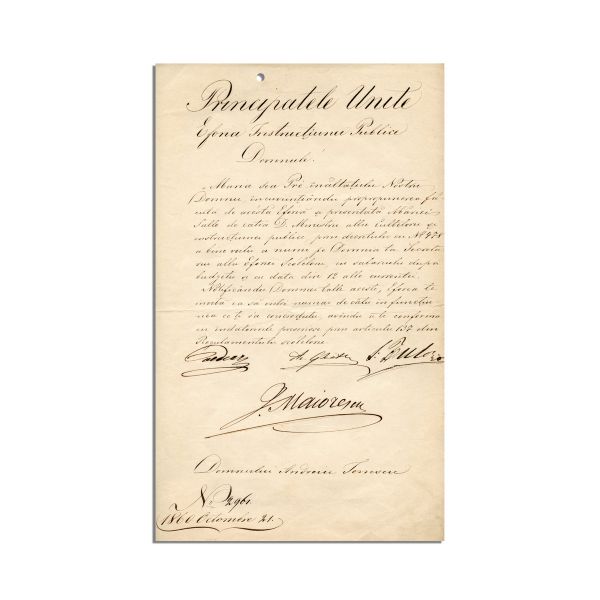 Principatele Unite
Eforia Instrucțiunii Publice
Domnule!
Maria sea Pré înălțatulu Nostru
Domnu încuviințându propropunerea fă
cuta de acesta Eforiă și presentată Măriei
Salle de catra D. Ministru allu Cultelor și
instrucțiunei publice, prin decretulu cu Nº 478
a bine voitu a numi pe Domnia ta Secreta
ru allu Eforiei Scolelor, cu salariulu după
budgetu și cu data din 12 alle currentei.
Notificându Domniei Talle acesta, Eforia te
invită ca să intri numai de câtu în funcțiu
nea ce ți s'a încredințatu, avându a te conforma
cu îndatoririle prescrise prin articolu 137 din
Regulamentulu scolelor.
J. Maiorescu
Domnului Andreiu
No 2961.
1860 Octomvrie 21.